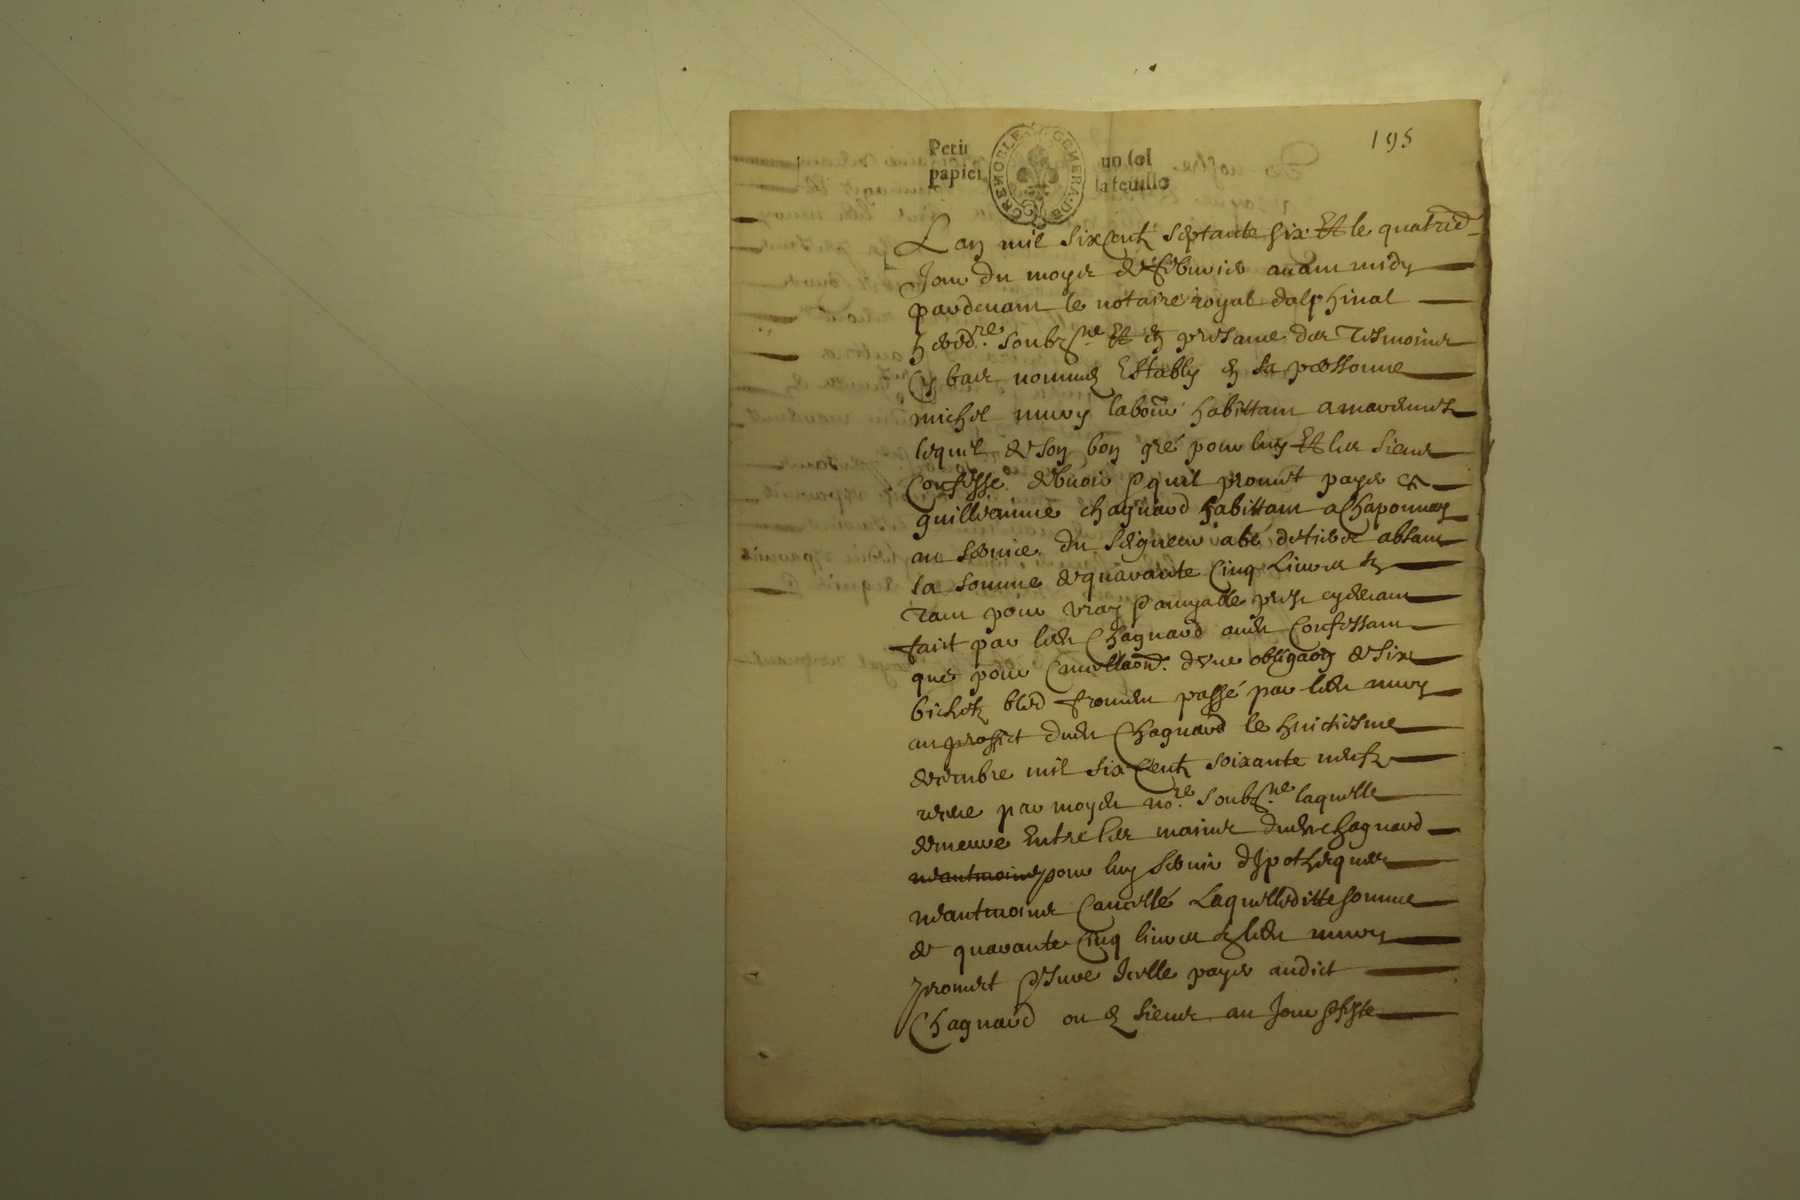 195
Petit papier un sol la feuille
GRENOBLE GENERA·DE
Lan mil six cent septante six Et le quatrie
Jour du moys de febvrier avant midy
pardevant le notaire royal dalphinal
hered.re soubz.ne Et en presance des Tesmoins
Cy bas nommez Establys en sa personne
michel muvy labour habittant a marennes
lequel de son bon gré pour luy Et les siens
Confesse debvoir & quil promet payer a
guilleaume chagnard habittant a Chaponnay
au service du seigneur abé absant
la somme de quarante Cinq livres &
Tant pour vray & amyable prest cydevant
fait par led Chagnard aud Confessant
que pour Cancellaon. dune obligaon de six
bichetz bled froment passé par led muvy
au proffict dud Chagnard le huictiesme
decembre mil six Centz soixante neufz
receue par moyd no.re soubz.ne laquelle
demeure Entre les mains dud chagnard
neantmoins pour luy servir dhipotheques
neantmoins Cancellé Laquelleditte somme
de quarante Cinq livres led muvy
promet & Jure Icelle payer audict
Chagnard ou es siens au Jour & feste